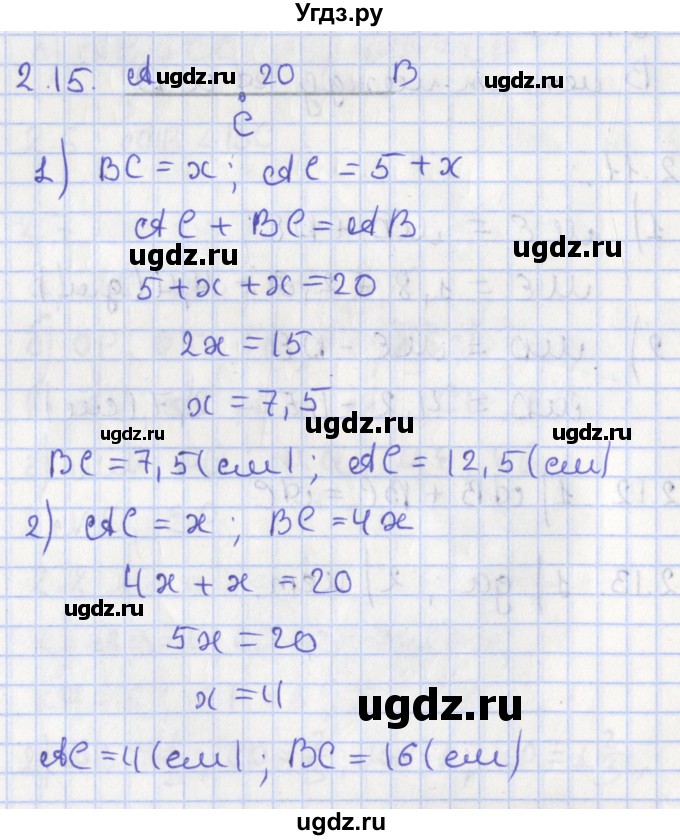 Угдз.ру
2.15. A ugdz.ru 20 B ugdz.ru
C
1) BC = x; AC = 5 + x
AC + BC = AB
ugdz.ru ugdz.ru
5 + x + x = 20
2x = 15
x = 7,5
ugdz.ru ugdz.ru ugdz.ru
BC = 7,5 (см); AC = 12,5 (см)
2) AC = x; BC = 4x
4x + x = 20
ugdz.ru
5x = 20
x = 4
ugdz.ru
AC = 4 (см); BC = 16 (см)
ugdz.ru ugdz.ru